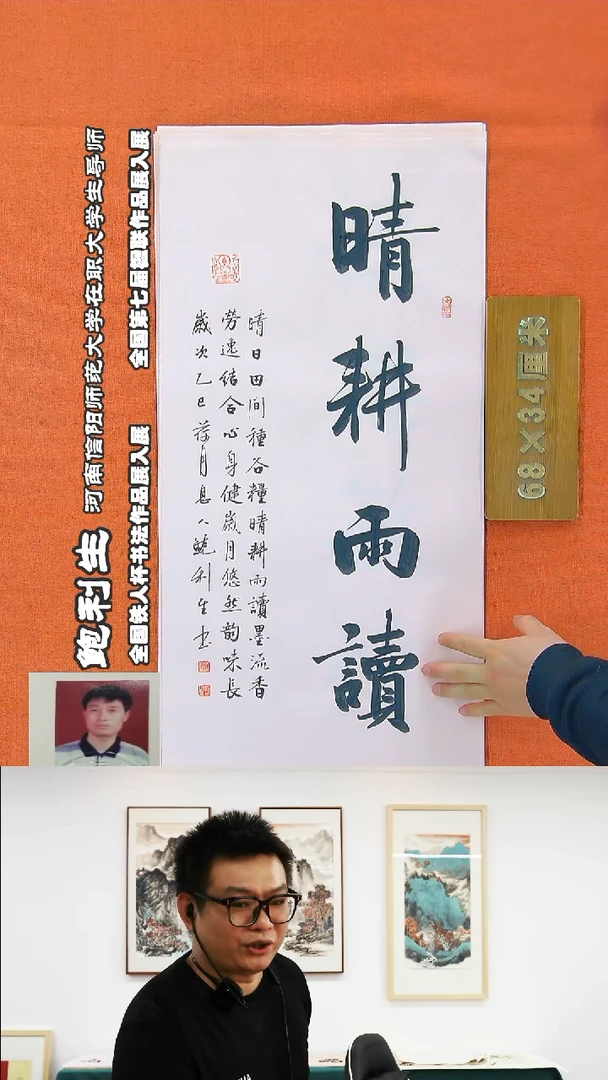 晴耕雨讀
晴日田間種谷糧晴耕雨讀墨流香
勞逸結合心身健歲月悠然韵味長
歲次乙巳荷月息人鮑利生書
68×34厘米
鲍利生 河南信阳师范大学在职大学生导师
全国铁人杯书法作品展入展
全国第七届楹联作品展入展